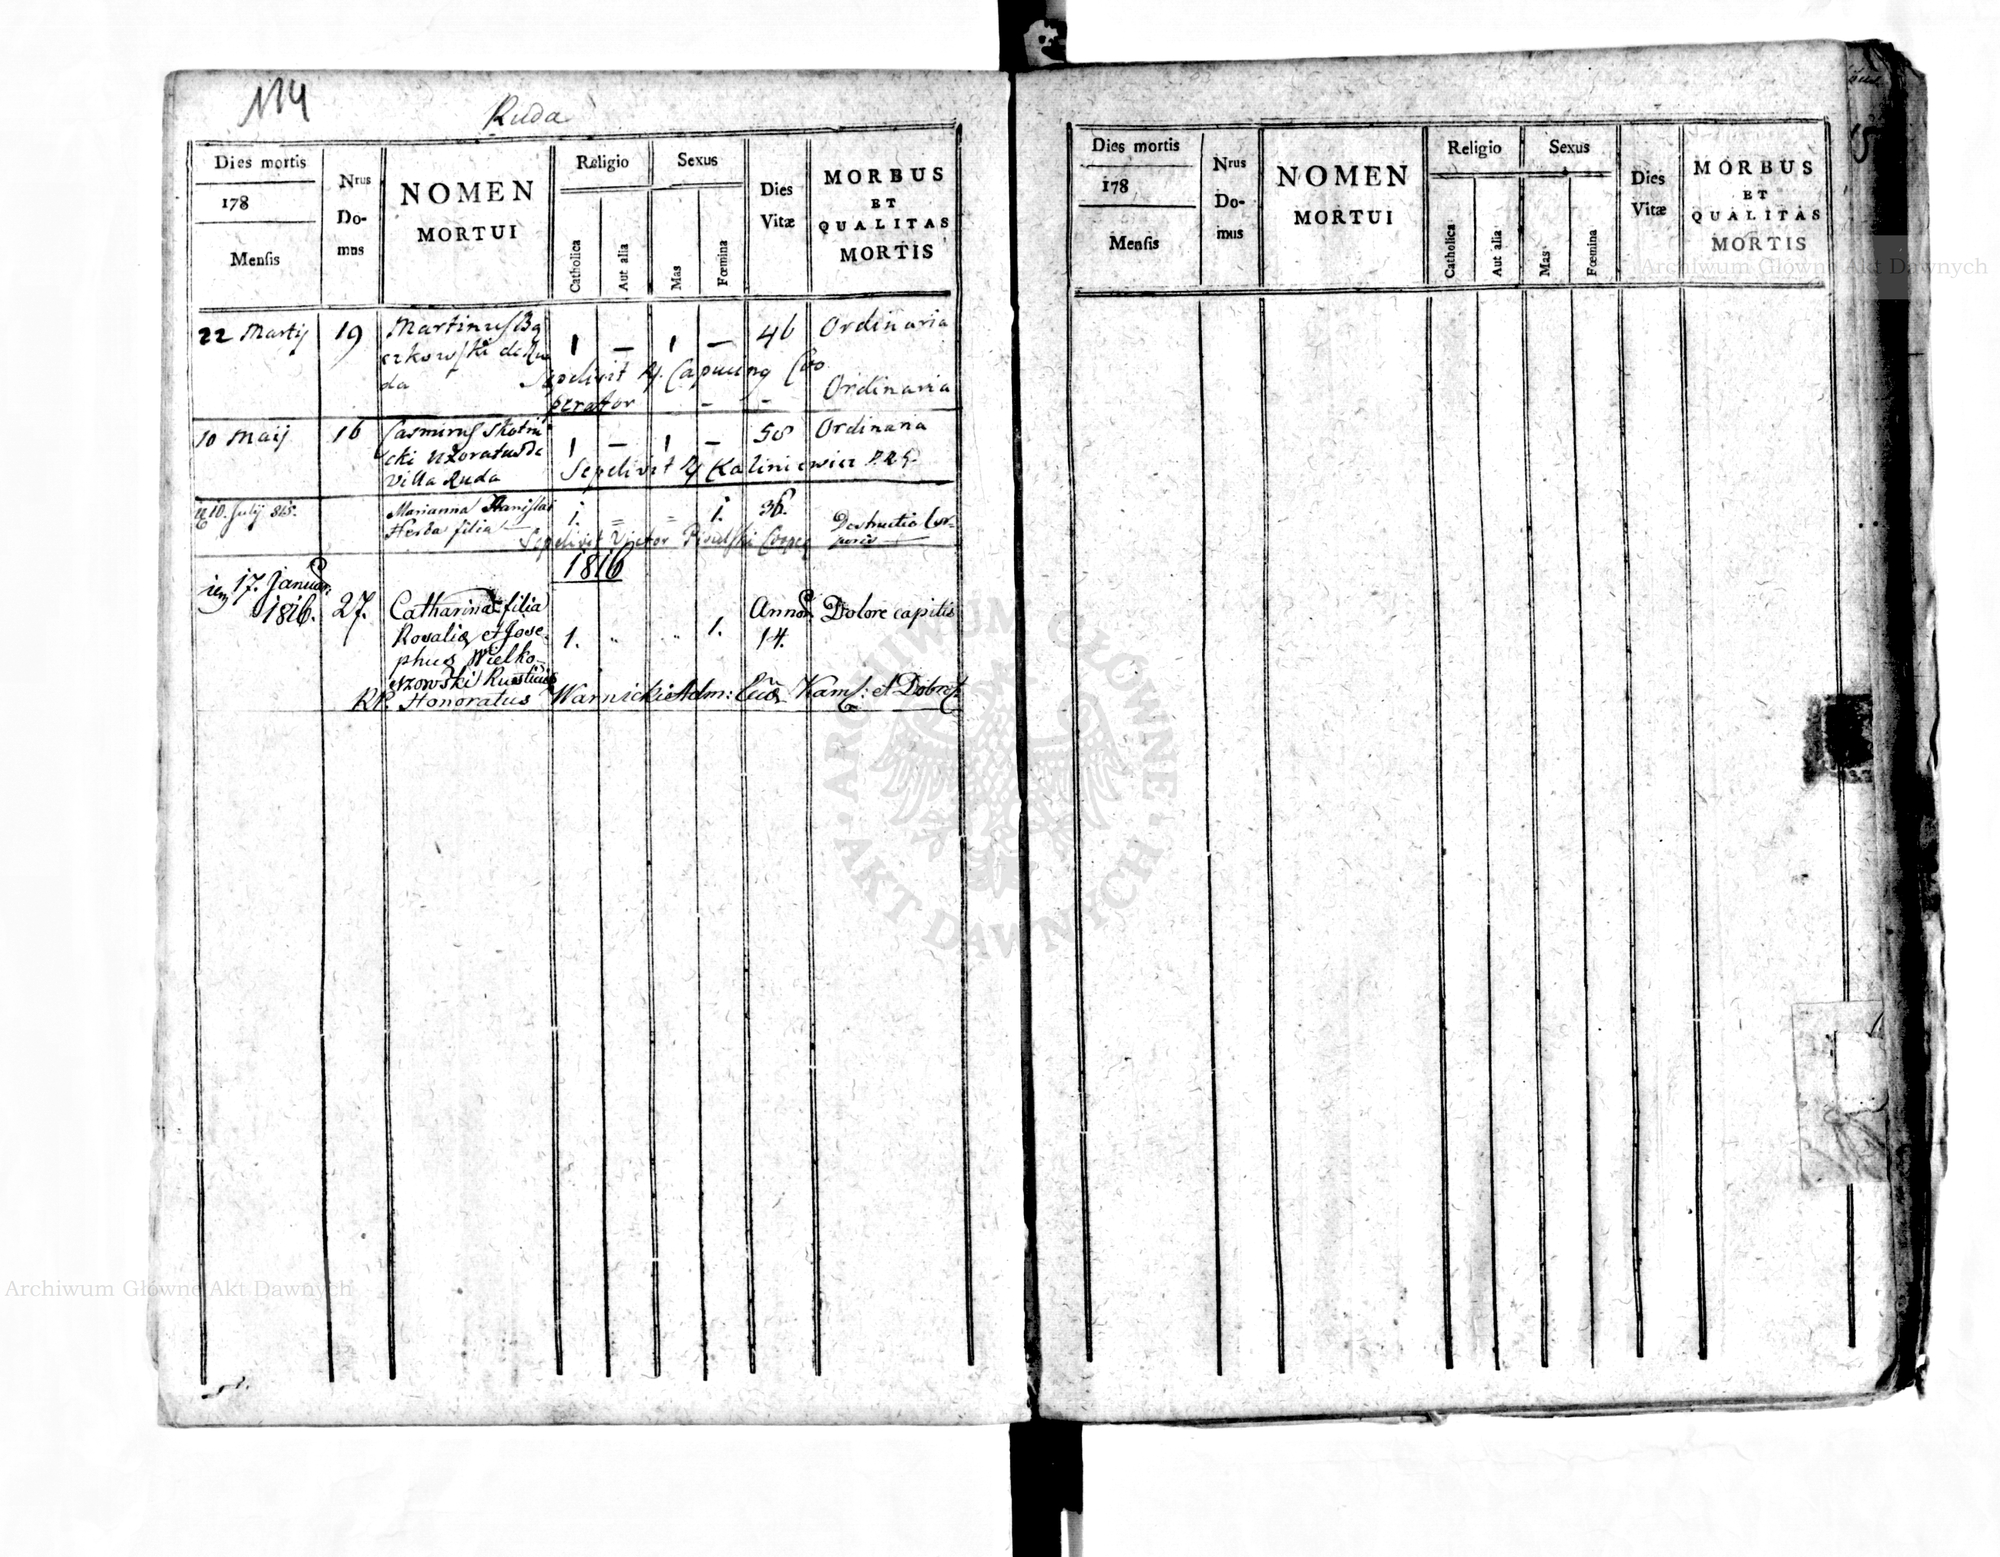 114
Ruda
Dies mortis
178
Mensis
Nrus
Do-
mus
NOMEN
MORTUI
Religio
Catholica
Aut alia
Sexus
Mas
Fœmina
Dies
Vitæ
MORBUS
ET
QUALITAS
MORTIS
22 Martij 19 Martinus Ba
czkowski de Ru
da
1 — 1 — 46 Ordinaria
Sepelivit Coo
perator - - Ordinaria
10 Maij 16 Casmirus Skotni
cki Uxoratus De
Villa Ruda
1 — 1 — 58 Ordinaria
Sepelivit Kaliniewicz
10. Julij 815. Marianna Stanislai
filia
1. = = 1. 36. Destructio Cor-
poris
Sepelivit Victor
1816
17. Januar.
1816. 27. Catharina filia
Rosaliæ et Jose-
phus Wielko-
szowski Rusticus
1. " " 1. Annor. 14. Dolore capitis
RP. Honoratus Warnicki Adm: Kams: et Dobres
Dies mortis
178
Mensis
Nrus
Do-
mus
NOMEN
MORTUI
Religio
Catholica
Aut alia
Sexus
Mas
Fœmina
Dies
Vitæ
MORBUS
ET
QUALITAS
MORTIS
Archiwum Główne Akt Dawnych
ARCHIWUM GŁÓWNE
AKT DAWNYCH
Archiwum Główne Akt Dawnych